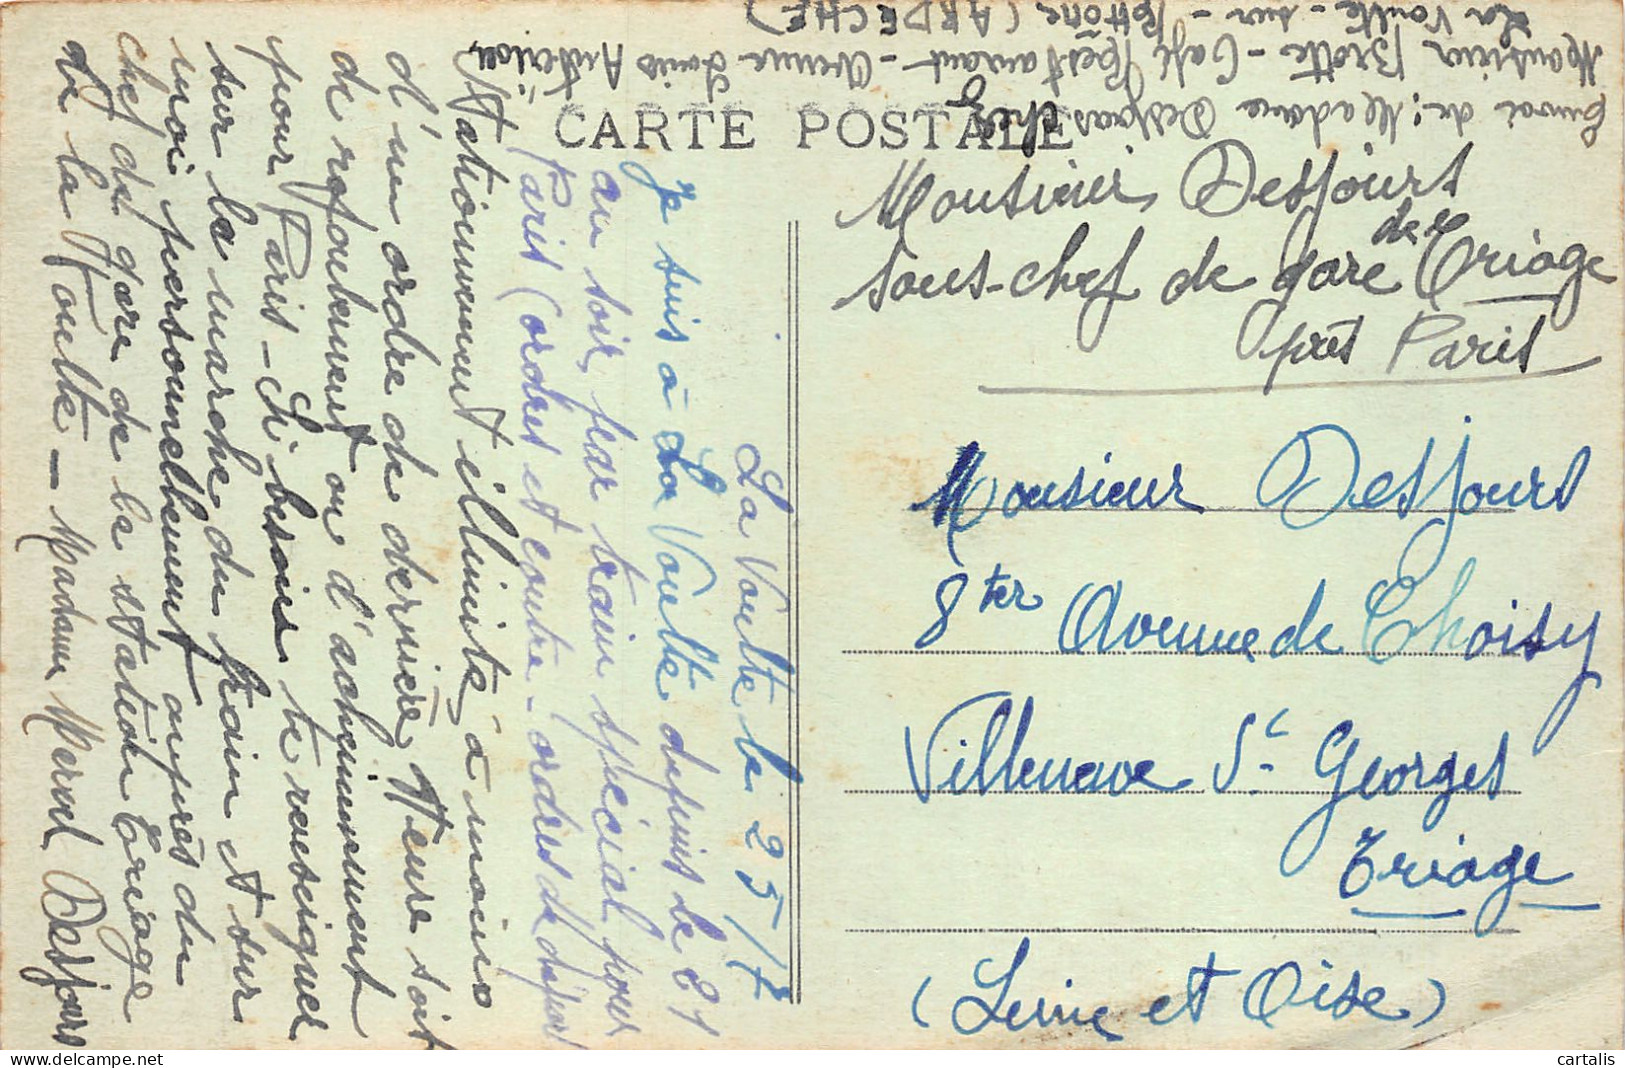 Envoi de : Madame Desjours chez
Monsieur Brotte - Café Restaurant - Avenue Louis Antériou
La Voulte - sur - Rhône (ARDECHE)
CARTE POSTALE
Monsieur, Desjours
sous-chef de gare de Triage
près Paris
Monsieur Desjours
8 ter Avenue de Choisy
Villeneuve St Georges
Triage
(Seine et Oise)
La Voulte le 25/7
Je suis à La Voulte depuis le 21
au soir, par train spécial pour
Paris (ordres et contre-ordres de départ
Stationnement illimité à moins
d'un ordre de dernière heure soit
de refoulement ou d'acheminement
pour Paris - Si besoin te renseigner
sur la marche du train et sur
moi personnellement auprès du
chef de gare de la station Triage
de La Voulte - Madame Desjours
cartalis